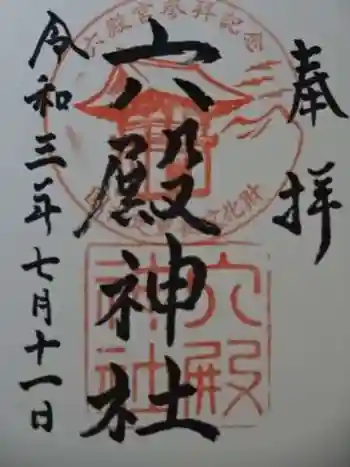 奉拝
六殿神社
令和三年七月十一日
六殿宮参拝記念
六殿神社